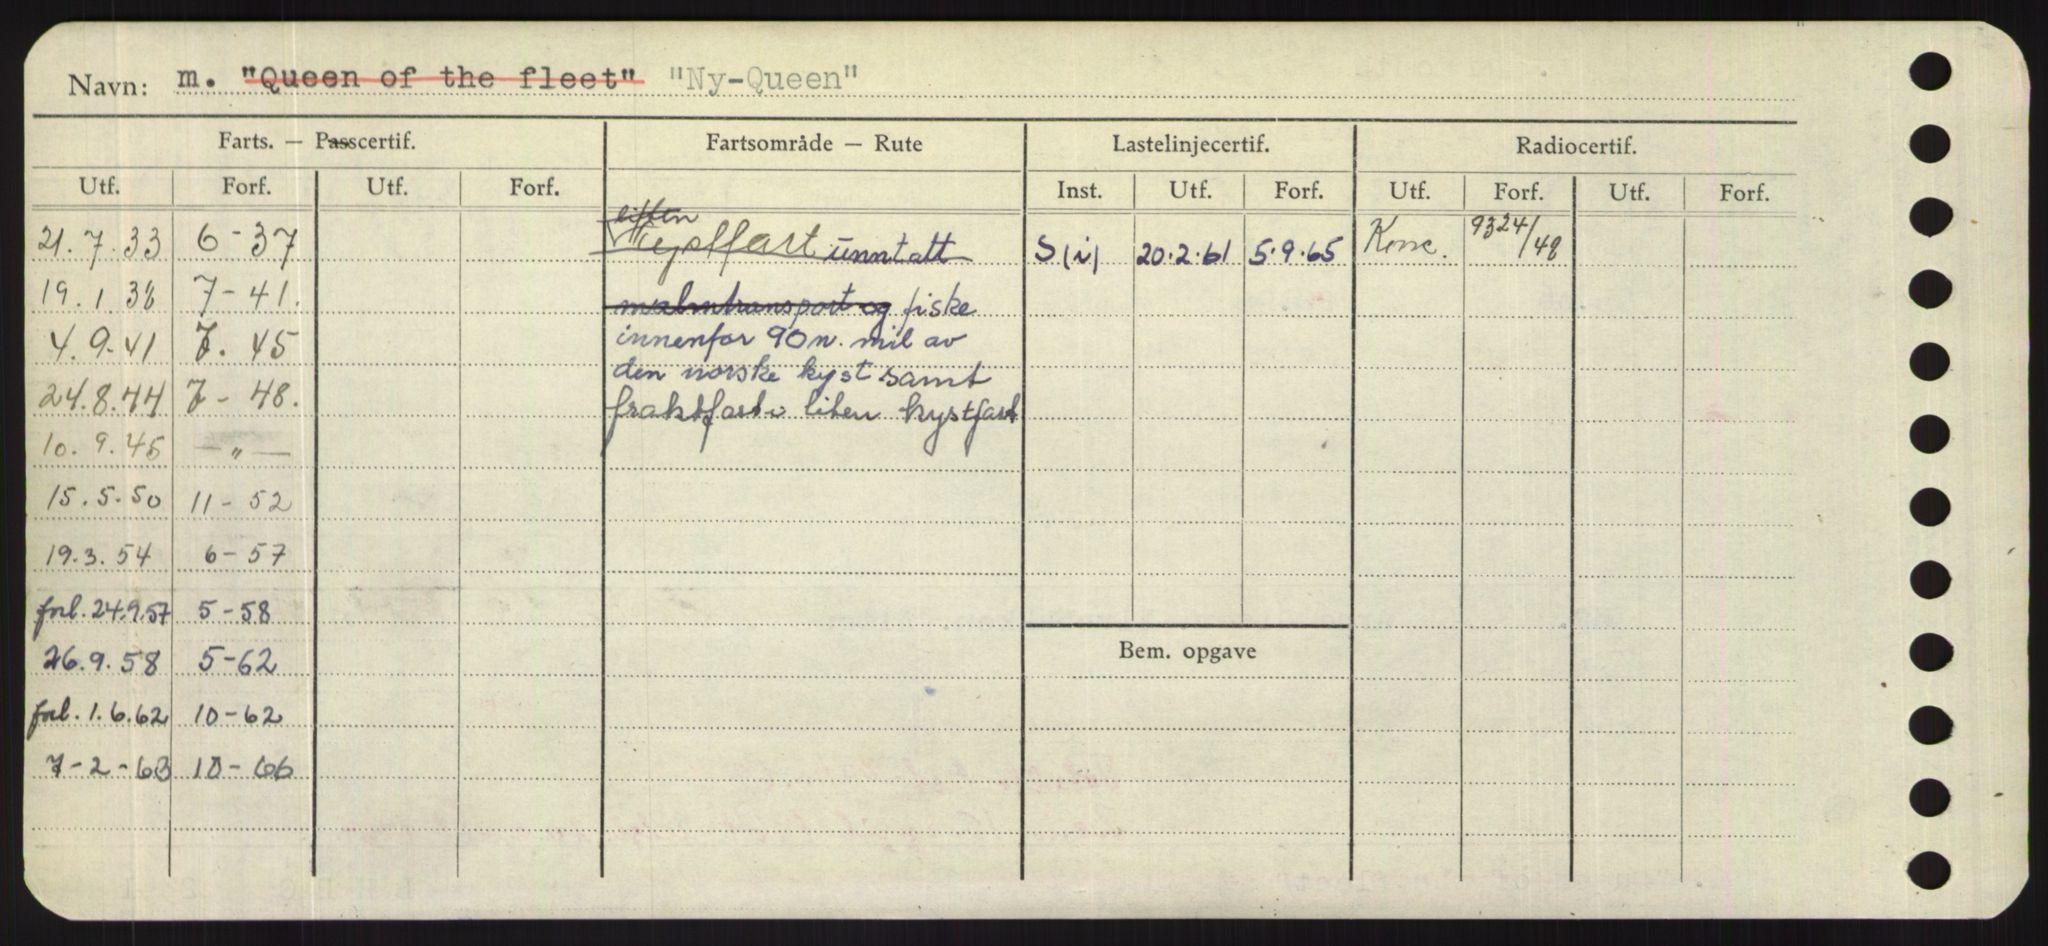 Navn: m. "Queen of the fleet" "Ny-Queen"
Farts. — Passcertif. Fartsområde — Rute Lastelinjecertif. Radiocertif.
Utf. Forf. Utf. Forf. Inst. Utf. Forf. Utf. Forf. Utf. Forf.
liten
21.7.33 6-37 Kystfart unntatt S(i) 20.2.61 5.9.65 Konc. 9324/48
19.1.38 7-41. malmtransport og fiske
4.9.41 7.45 innenfor 90 n. mil av
den norske kyst samt
24.8.44 7-48. fraktfart i liten kystfart
10.9.45 —„—
15.5.50 11-52
19.3.54 6-57
forl. 24.9.57 5-58
26.9.58 5-62 Bem. opgave
forl. 1.6.62 10-62
7-2-63 10-66